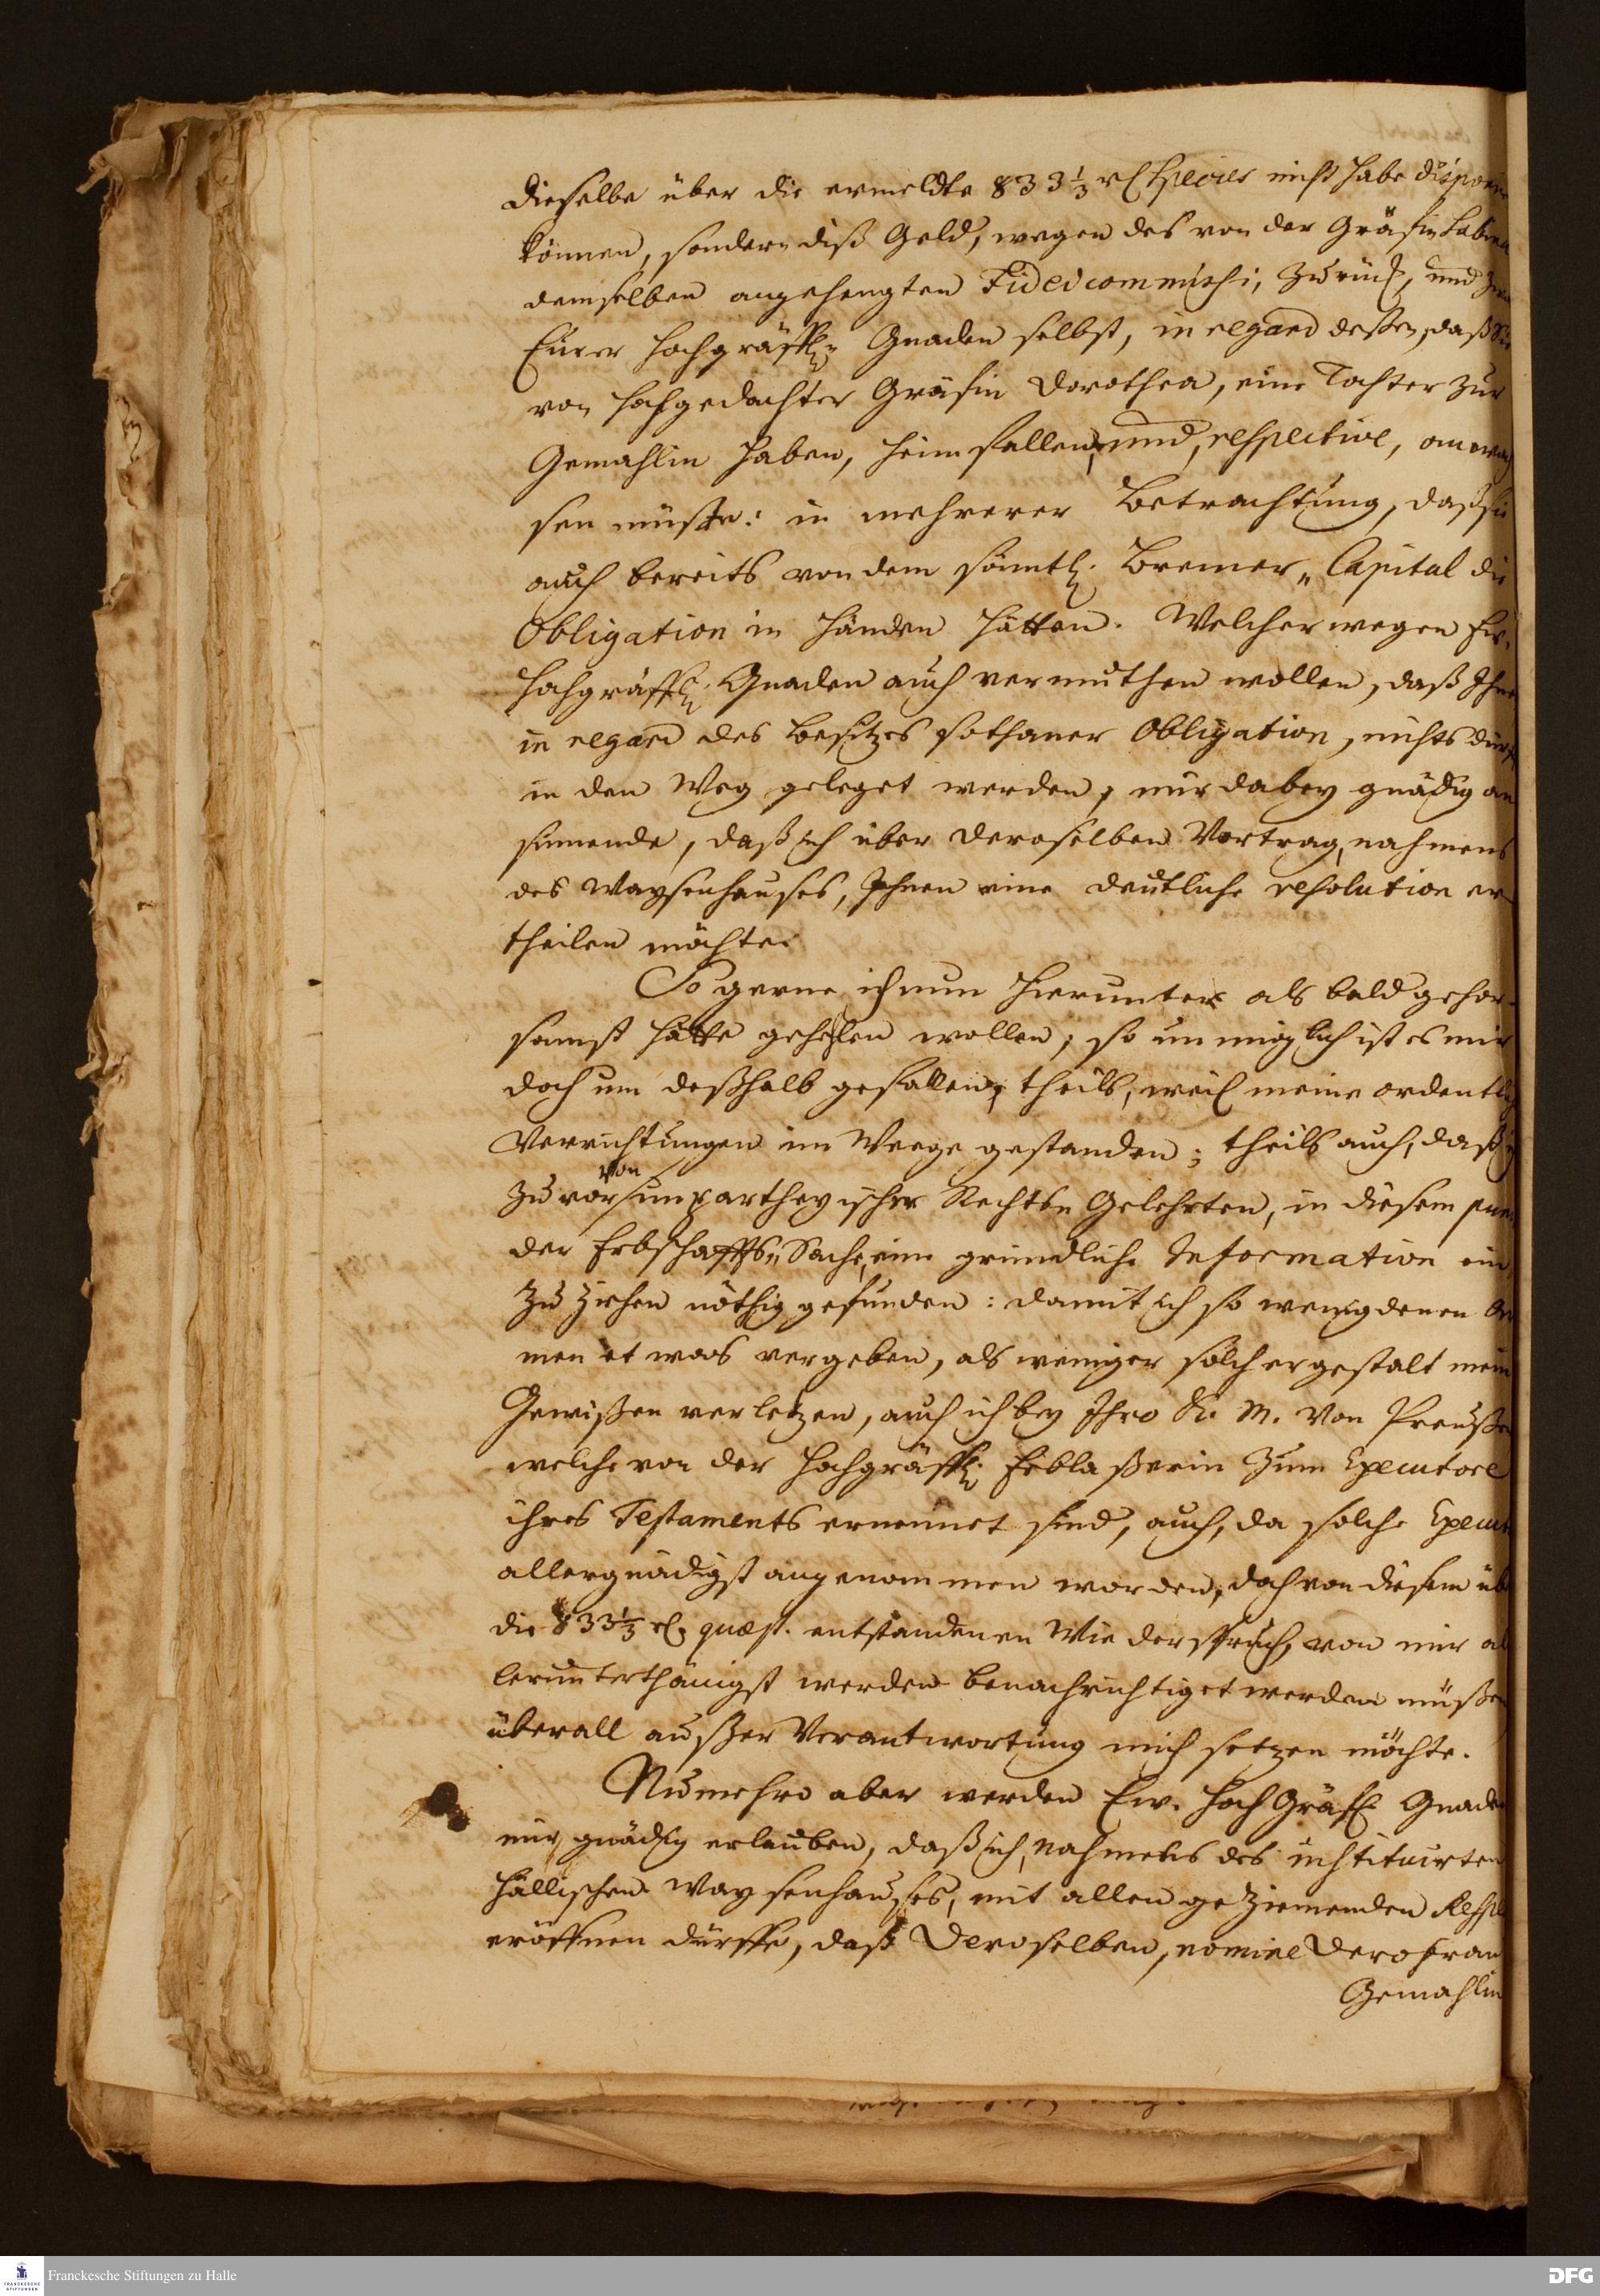 dieselbe über die ermeldte 833⅓ rl Species nicht habe dispon
können, sondern diß Geld, wegen des von der Gräfin Sabina
demselben angehengten Fideicommissi, zurück, und
Eurer hochgräffl. Gnaden selbst, in regard deßen, daß Sie
von hochgedachter Gräfin Dorothea, eine Tochter zur
Gemahlin haben, heimfallen, und, respective, anwach
sen müste: in mehrerer Betrachtung, daß sie
auch bereits von dem sämtl. Bremer„ Capital die
Obligation in händen hätten. Welcher wegen Ew.
hochgräffl. Gnaden auch vermuthen wollen, daß Ihne
in regard des besitzes sothaner Obligation, nichts dürf
in den Weg geleget werden, nur dabey gnädig an
sinnende, daß ich über deroselben Vortrag, nahmens
des Waysenhauses, Ihnen eine deutliche resolution er
theilen möchte.
So gerne ich nun hierunter als bald gehor-
samst hätte gehelen wollen; so unmöglich ist es mir
doch um deßhalb gefallen, theils, weil meine ordentl
Verrichtungen im Weege gestanden; theils auch, daß ich
zuvor von unpartheyischer Rechts Gelehrten, in diesem
der Erbschaffts„ Sache, eine gründliche Information ein
zu ziehen nöthig gefunden: damit ich so wenig denen Ar
men etwas vergeben, als weniger solchergestalt mein
Gewißen verletzen, auch ich bey Ihro K. M. von Preußen
welche von der hochgräffl. Erblaßerin zum Executore
ihres Testaments ernennet sind, auch, da solche Execut
allergnädigst angenommen worden, doch von diesem üb
die 833⅓ rl. quæst. entstandenen Wiederspruch, von mir al
lerunterthänigst werden benachrichtiget werden müßen
überall außer Verantwortung mich setzen möchte.
Nunmehro aber werden Ew. Hoch Gräfl. Gnaden
mir gnädig erlauben, daß ich, nahmens des instituirten
Hällischen Waysenhauses, mit allen geziemenden Resp
eröffnen dürffe, daß Deroselben, nomine Dero Frau
Gemahlin
Franckesche Stiftungen zu Halle
FRANCKESCHE STIFTUNGEN
DFG